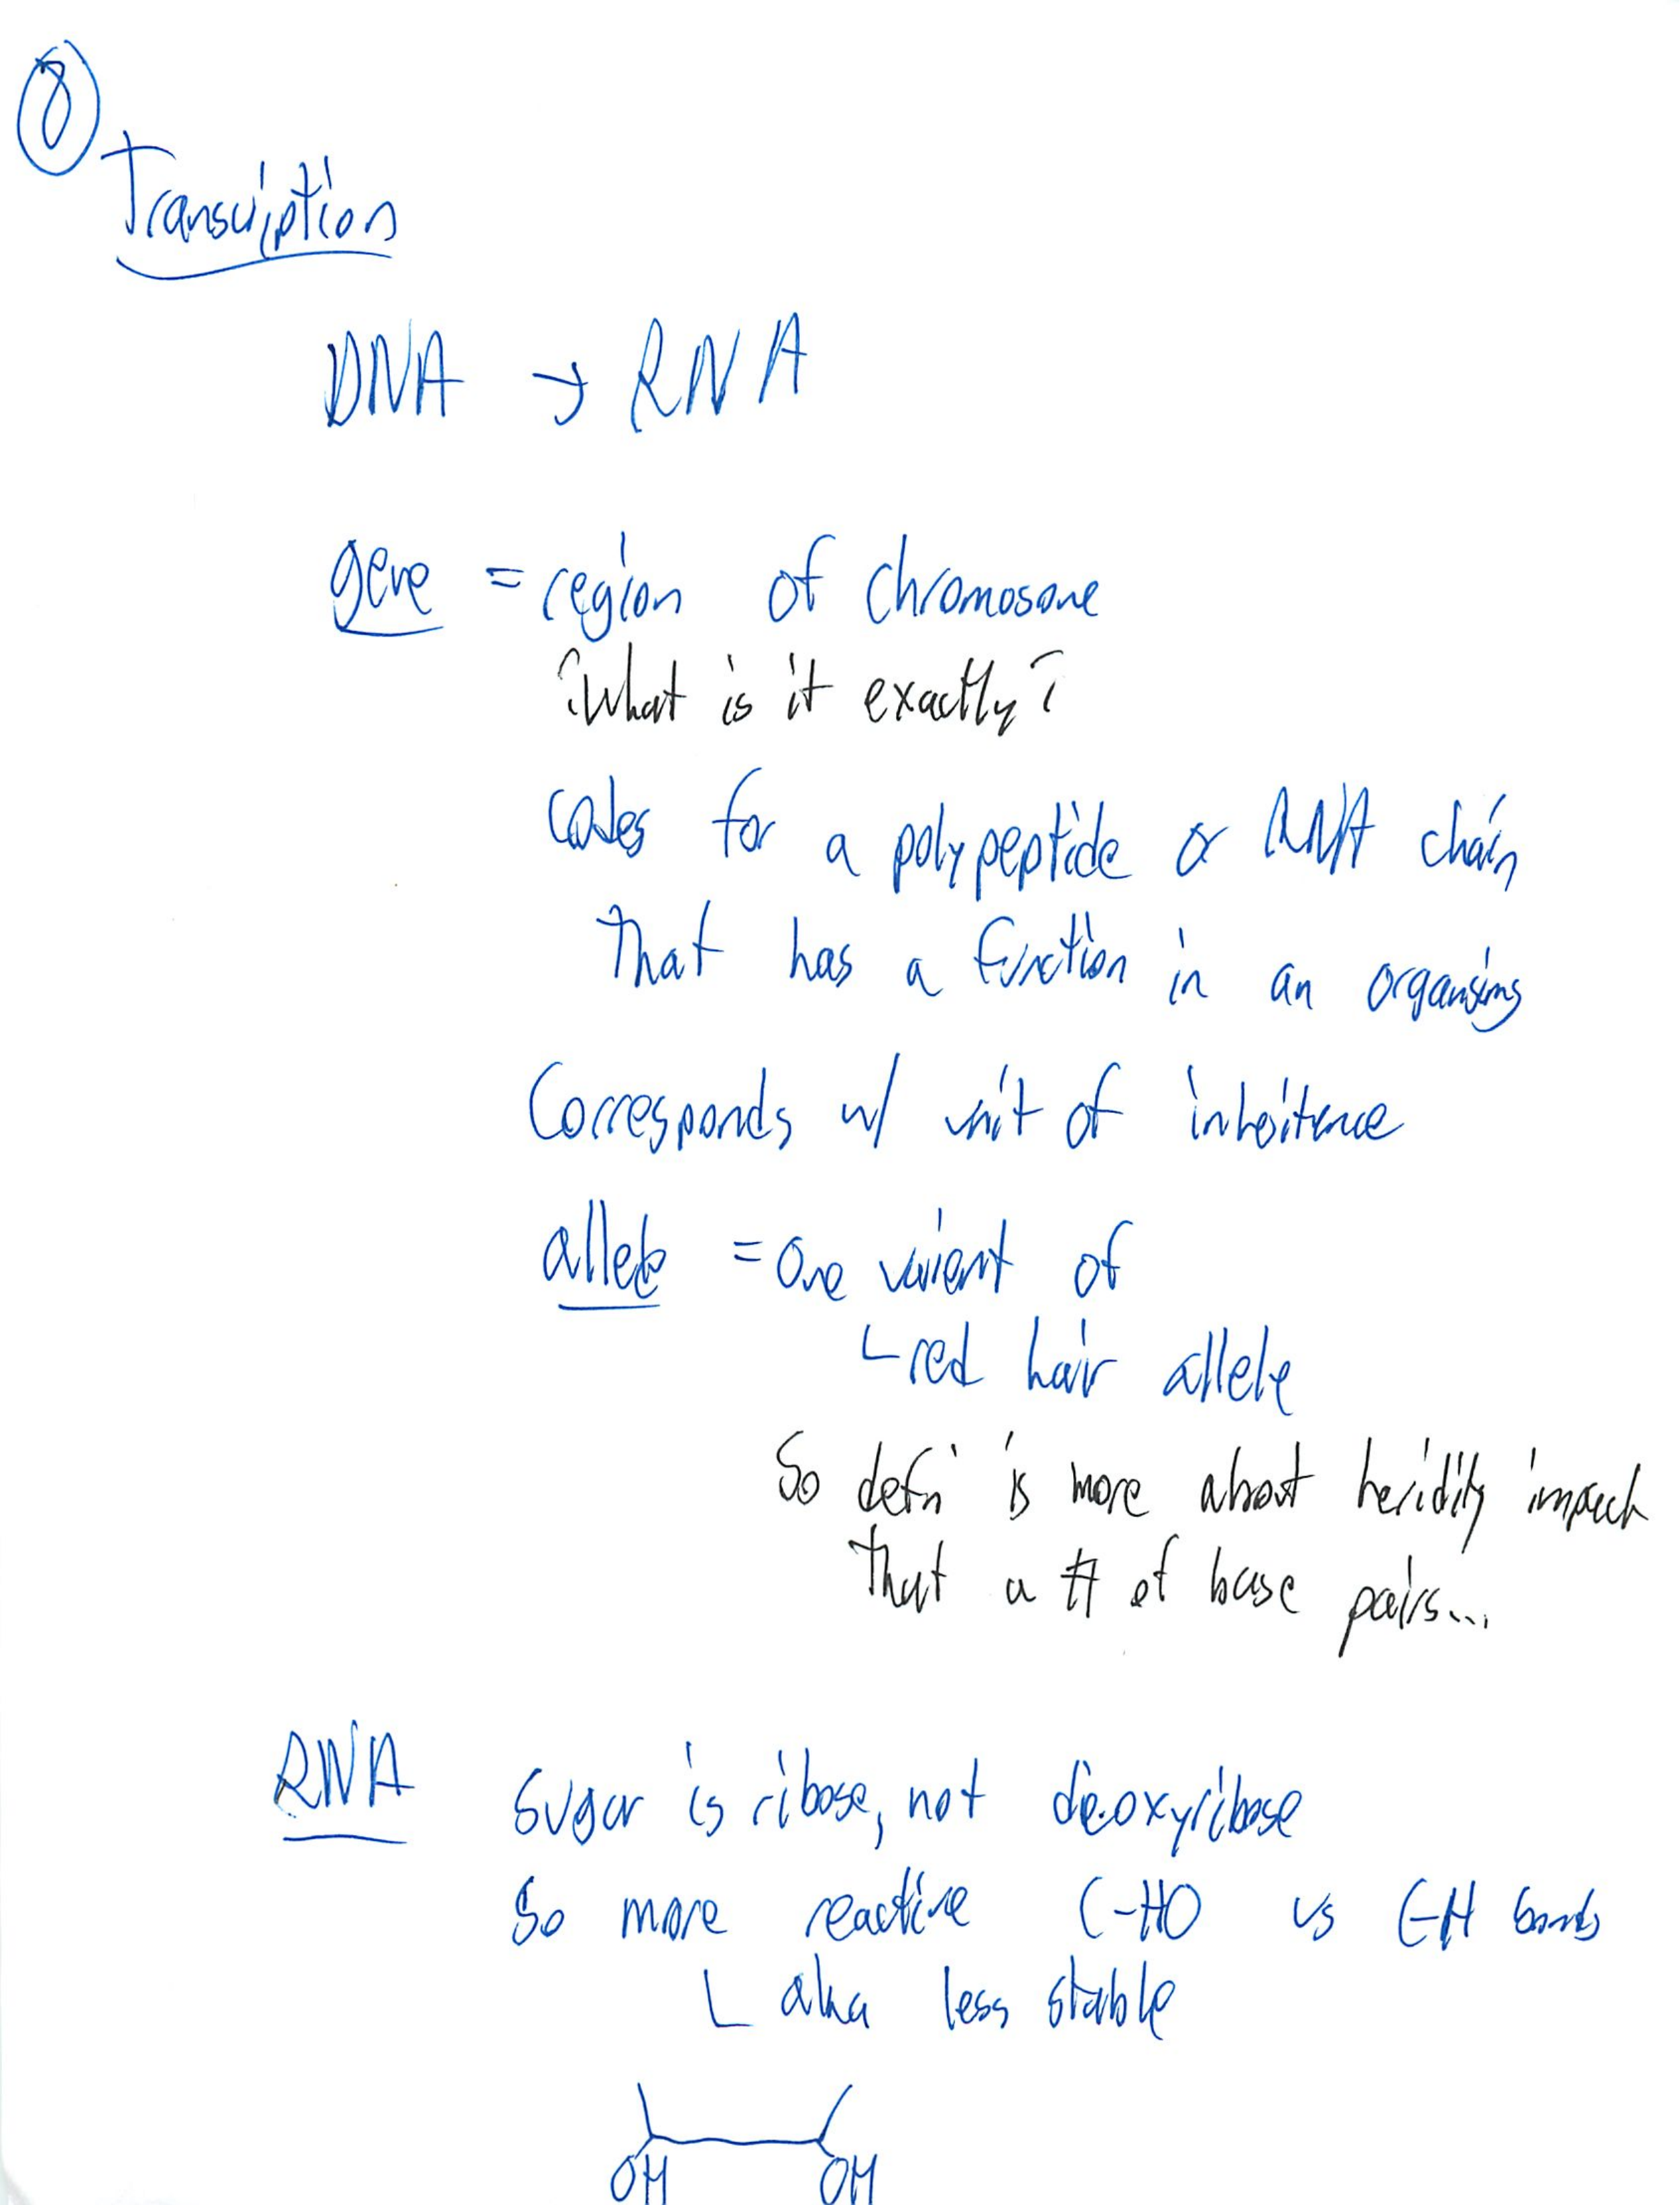 8
Transcription
DNA → RNA
gene = region of chromosome
?What is it exactly?
codes for a polypeptide or RNA chain
that has a function in an organsims
Corresponds w/ unit of inheritence
allele = one varient of
└ red hair allele
So defn' is more about heridity impact
that a # of base pairs...
RNA Sugar is ribose, not deoxyribose
So more reactive C-HO vs C-H bonds
└ aka less stable
OH OH